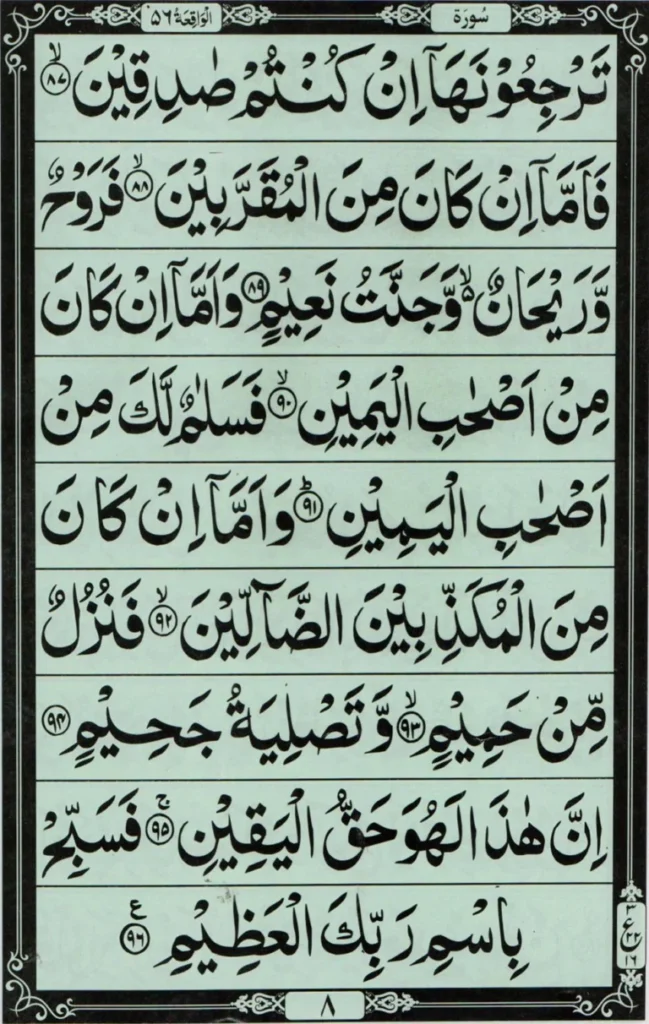 سُورَة
الْوَاقِعَة ٥٦
تَرْجِعُوْنَهَاۤ اِنْ كُنْتُمْ صٰدِقِيْنَ ۙ‏﴿۸۷﴾
فَاَمَّاۤ اِنْ كَانَ مِنَ الْمُقَرَّبِيْنَ ۙ‏﴿۸۸﴾ فَرَوْحٌ
وَّرَيْحَانٌ ۙ۬ وَّجَنَّتُ نَعِيْمٍ ‏﴿۸۹﴾ وَاَمَّاۤ اِنْ كَانَ
مِنْ اَصْحٰبِ الْيَمِيْنِ ۙ‏﴿۹۰﴾ فَسَلٰمٌ لَّكَ مِنْ
اَصْحٰبِ الْيَمِيْنِ ؕ‏﴿۹۱﴾ وَاَمَّاۤ اِنْ كَانَ
مِنَ الْمُكَذِّبِيْنَ الضَّآلِّيْنَ ۙ‏﴿۹۲﴾ فَنُزُلٌ
مِّنْ حَمِيْمٍ ۙ‏﴿۹۳﴾ وَّتَصْلِيَةُ جَحِيْمٍ ‏﴿۹۴﴾
اِنَّ هٰذَا لَهُوَ حَقُّ الْيَقِيْنِ ۚ‏﴿۹۵﴾ فَسَبِّحْ
بِاسْمِ رَبِّكَ الْعَظِيْمِ ‏﴿۹۶﴾ ع
۳
ع
۲۲
۱۶
۸